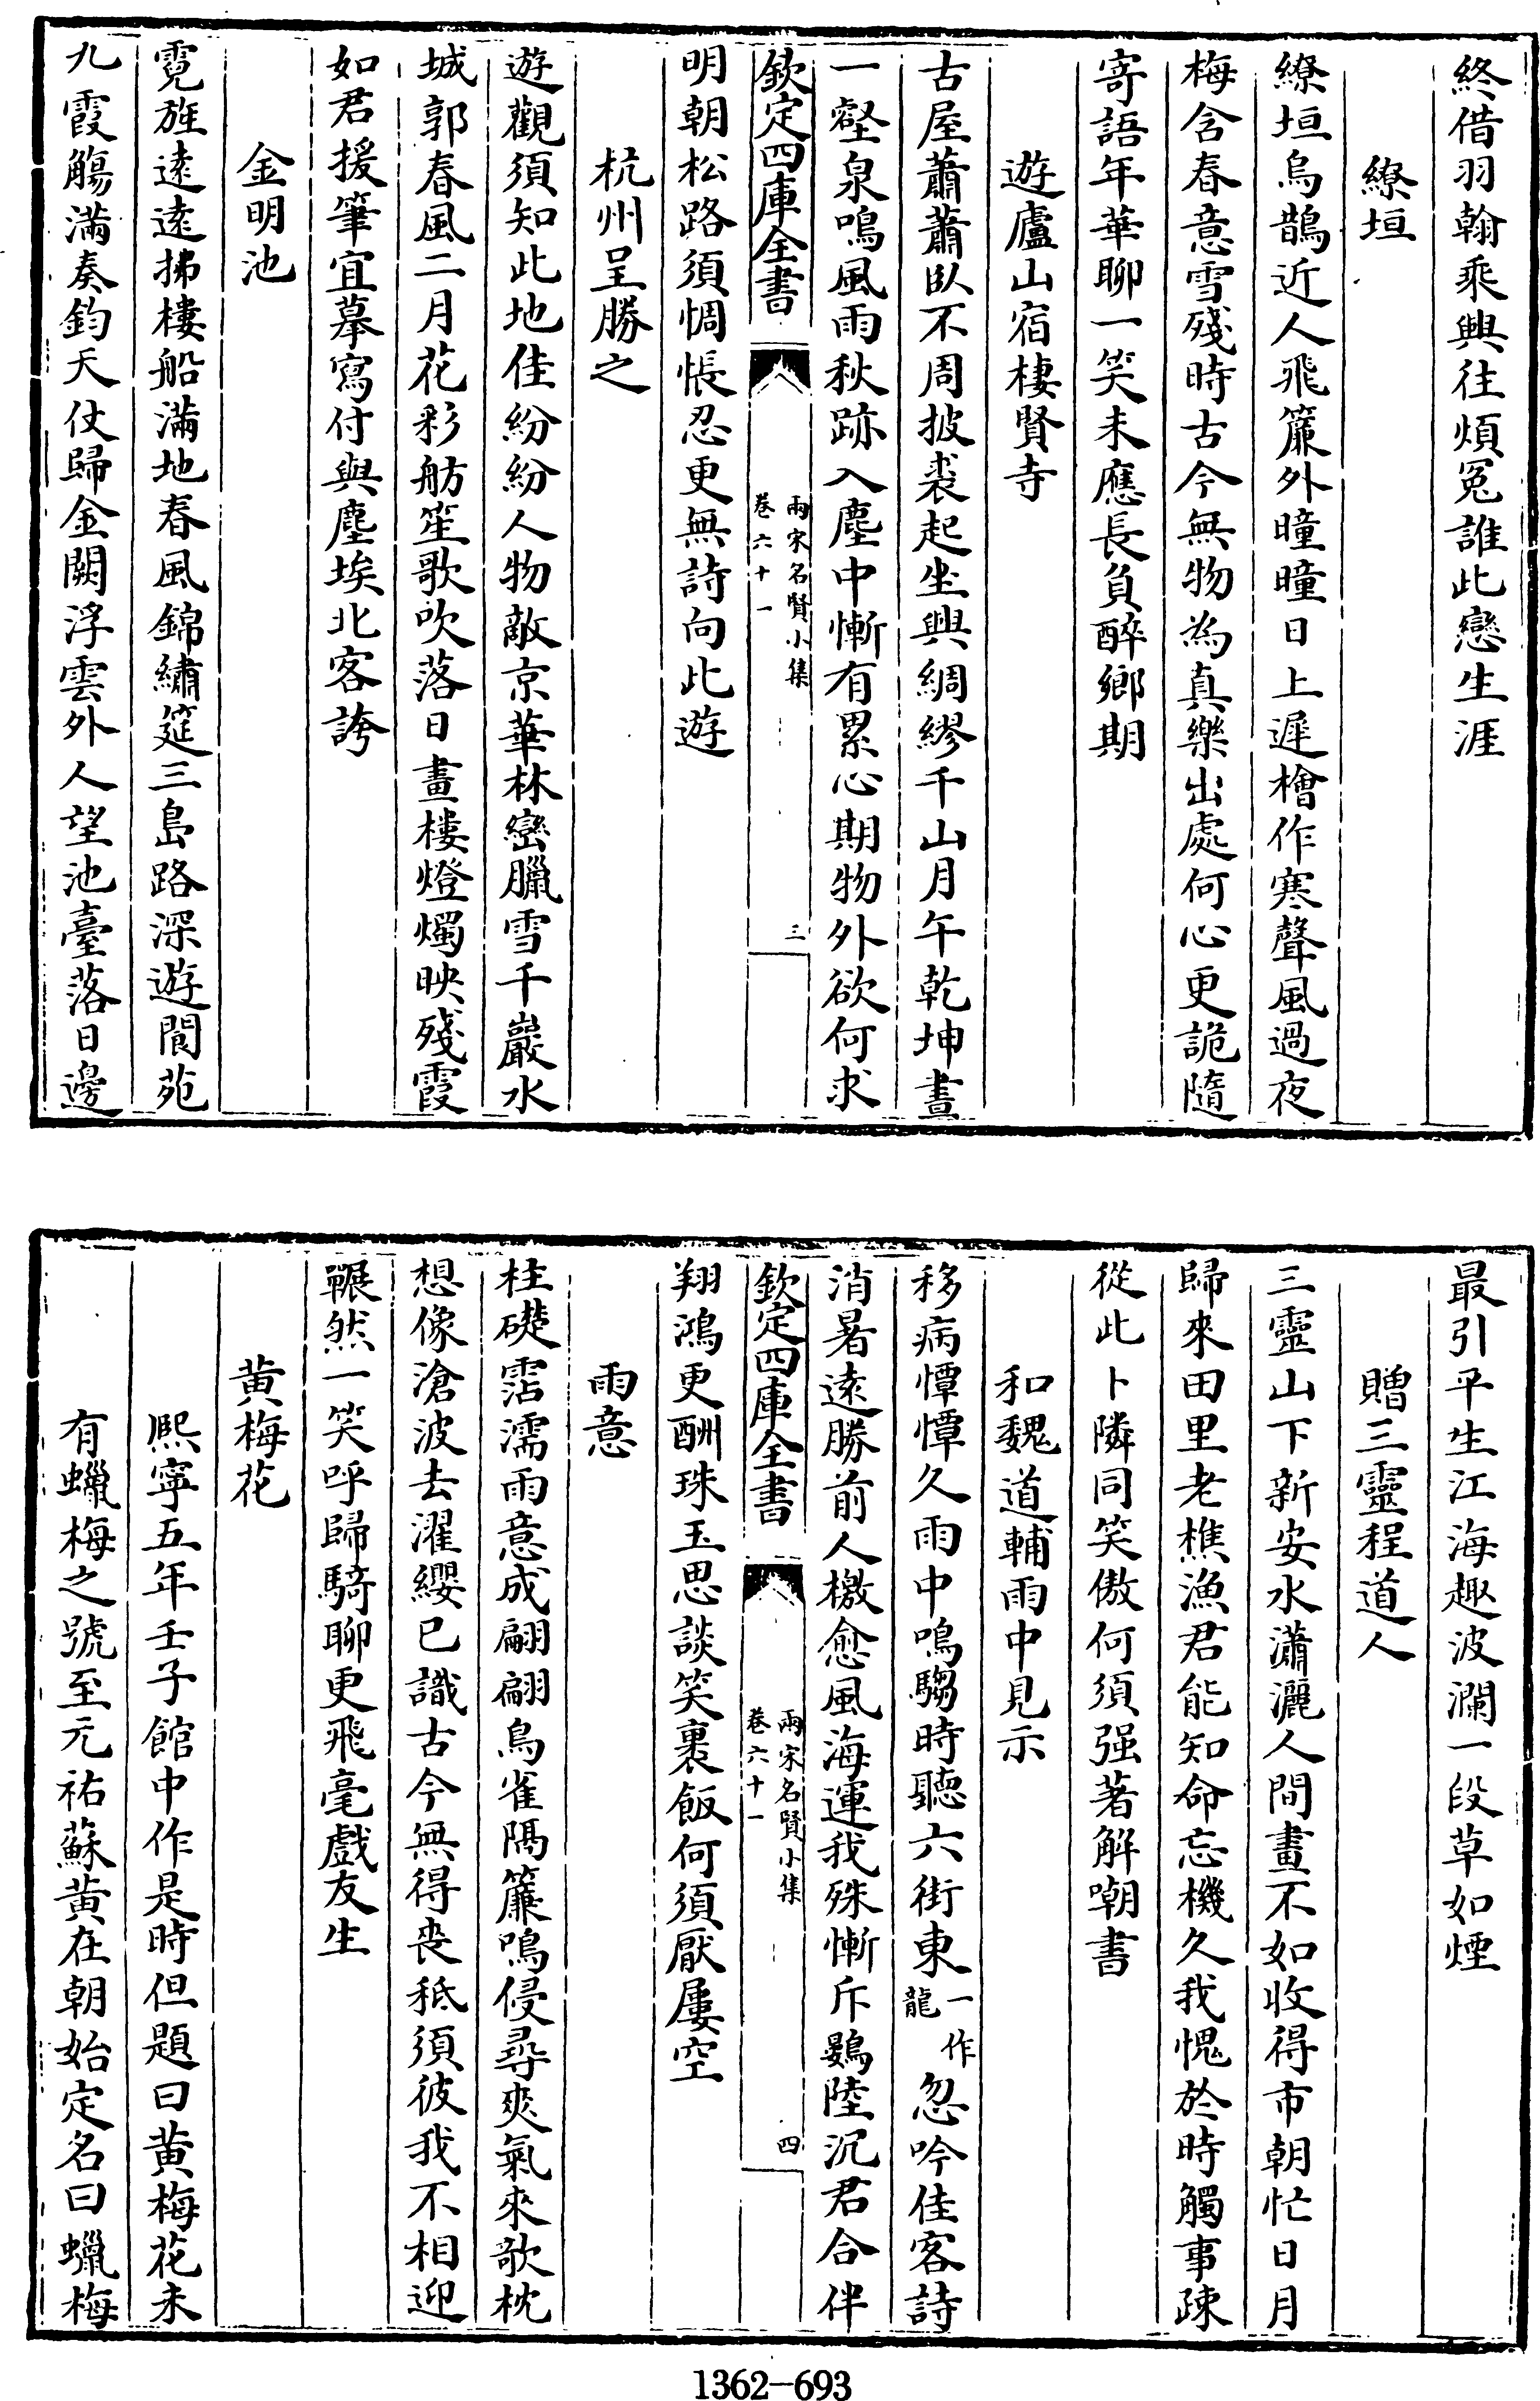 終借羽翰乘興往煩冤誰此戀生涯
繚垣
繚垣烏鵲近人飛簾外曈曈日上遲檜作寒聲風過夜
梅含春意雪殘時古今無物為真樂出處何心更詭隨
寄語年華聊一笑未應長負醉鄉期
遊廬山宿棲賢寺
古屋蕭蕭臥不周披裘起坐興綢繆千山月午乾坤晝
一壑泉鳴風雨秋跡入塵中慚有累心期物外欲何求
欽定四庫全書
兩宋名賢小集
卷六十一
三
明朝松路須惆悵忍更無詩向此遊
杭州呈勝之
遊觀須知此地佳紛紛人物敵京華林巒臘雪千巖水
城郭春風二月花彩舫笙歌吹落日畫樓燈燭映殘霞
如君援筆宜摹寫付與塵埃北客誇
金明池
霓旌遠遠拂樓船滿地春風錦繡筵三島路深遊閬苑
九霞觴滿奏鈞天仗歸金闕浮雲外人望池臺落日邊
最引平生江海趣波瀾一段草如煙
贈三靈程道人
三靈山下新安水瀟灑人間畫不如收得市朝忙日月
歸來田里老樵漁君能知命忘機久我愧於時觸事疎
從此卜隣同笑傲何須强著解嘲書
和魏道輔雨中見示
移病憚憚久雨中鳴騶時聽六街東一作龍忽吟佳客詩
消暑遠勝前人檄愈風海運我殊慚斥鷃陸沉君合伴
欽定四庫全書
兩宋名賢小集
卷六十一
四
翔鴻更酬珠玉思談笑裹飯何須厭屢空
雨意
柱礎霑濡雨意成翩翩鳥雀隔簾鳴侵尋爽氣來欹枕
想像滄波去濯纓已識古今無得喪秪須彼我不相迎
囅然一笑呼歸騎聊更飛毫戲友生
黄梅花
熙寧五年壬子館中作是時但題曰黄梅花未
有蠟梅之號至元祐蘇黄在朝始定名曰蠟梅
1362-693